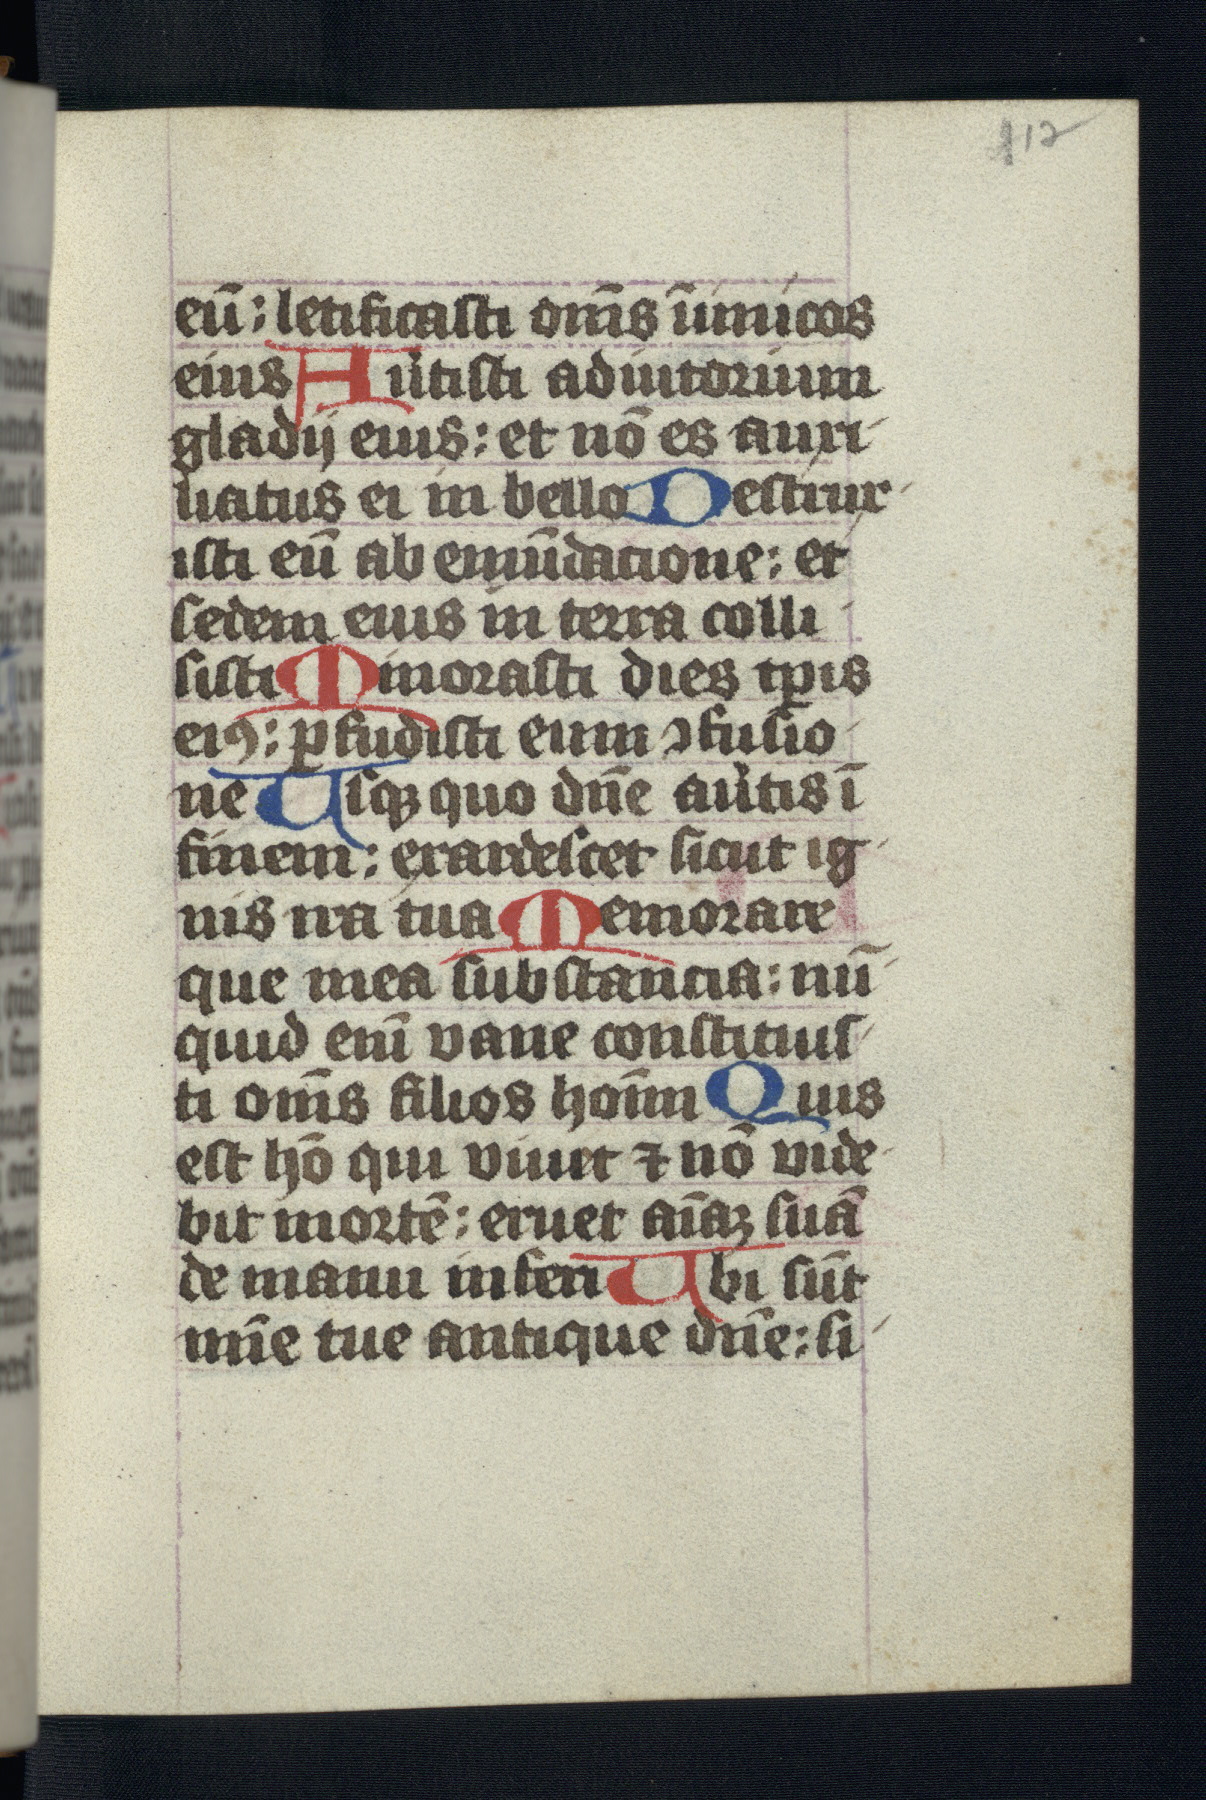 112
eū: letificasti om̄s īimicos
eius Au̔tisti adiutorium
gladij eius: et nō es auxi-
liatus ei in bello Destrux-
isti eū ab emūdacione: et
sedem eius in terra colli-
sisti Minorasti dies tp̄is
eiꝰ: ꝑfudisti eum ꝯfusio-
ne Usqꝫ quo dn̄e au̔tis ī
finem: exardescet sicut ig-
nis ira tua Memorare
que mea substancia: nū-
quid enī vane constituis-
ti om̄s filios hoīm Quis
est hō qui viuet ⁊ nō vide-
bit mortē: eruet aīaꝫ suā
de manu inferi Ubi sūt
mīe tue antique dn̄e: si-